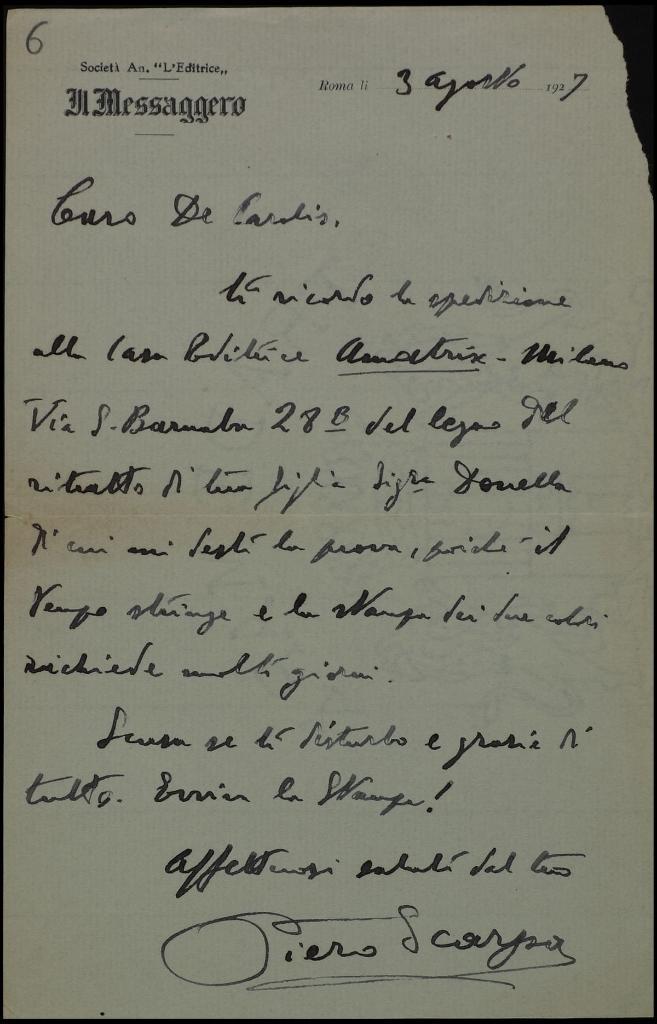 6
Società An. "L'Editrice„
Il Messaggero
Roma li 3 agosto 1927
Caro De Carolis,
ti ricordo la spedizione
alla Casa Editrice Amatrix - Milano
Via S. Barnaba 28 B del legno del
ritratto di tua figlia Sigra Donella
di cui mi desti la prova, poichè il
tempo stringe e la stampa dei due colori
richiede molti giorni.
Scusa se ti disturbo e grazie di
tutto. Evviva la Stampa!
Affettuosi saluti dal tuo
Piero Scarpa